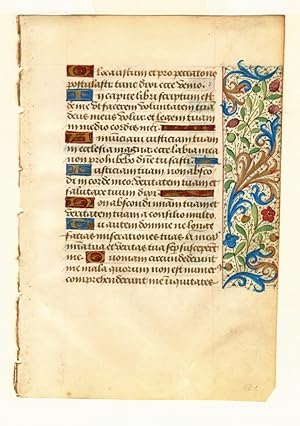 Olocaustum et pro peccato no
postulasti tunc dixi ecce venio
In capite libri scriptum est
de me ut facerem voluntatem tuam
deus meus volui et legem tuam
in medio cordis mei
Annunciavi iusticiam tuam
in ecclesia magna ecce labia mea
non prohibebo dñe tu scisti
Iusticiam tuam non absco
di in corde meo veritatem tuam et
salutare tuum dixi
Non abscondi miam tuam et
veritatem tuam a consilio multo
Tu autem domine ne longe
facias miserationes tuas a me
mia tua et veritas tua sēp susceper
me Quoniam circundederunt
me mala quorum non est numer
comprehenderunt me iniquitates